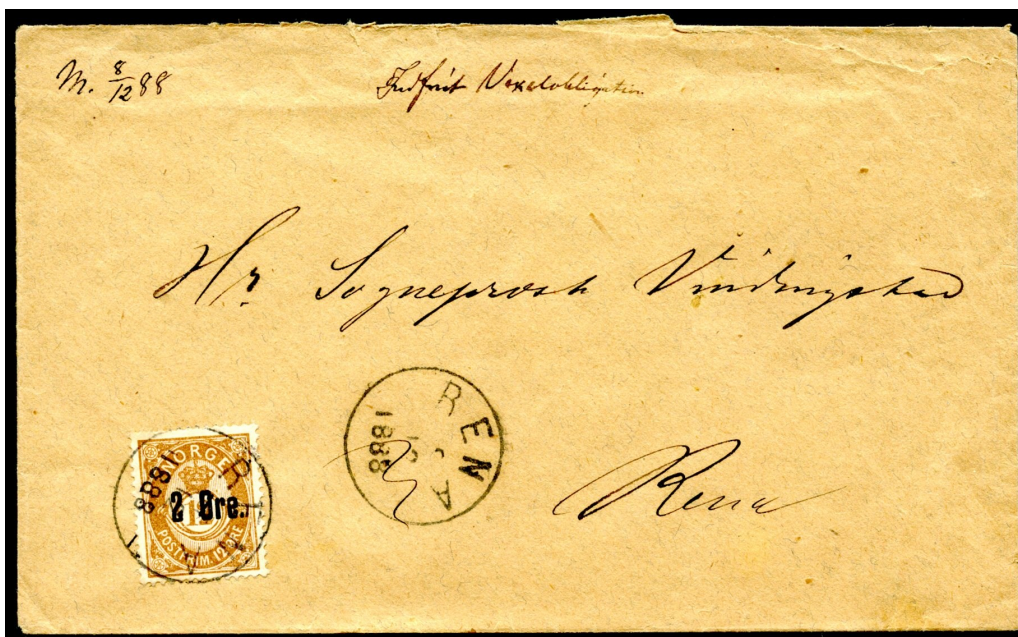 M. 8/12 88
Indfriet Vexelobligation
Hr. Sogneprest Vindingstad
RENA
1888
Rena
NORGE
2 Øre.
POSTFRIM. 12 ØRE
RENA
1888